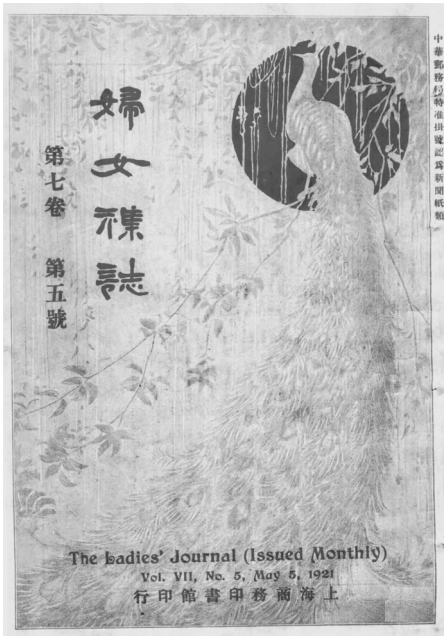 中華郵務局特准掛號認爲新聞紙類
婦女雜誌
第七卷 第五號
The Ladies' Journal (Issued Monthly)
Vol. VII, No. 5, May 5, 1921
上海商務印書館印行